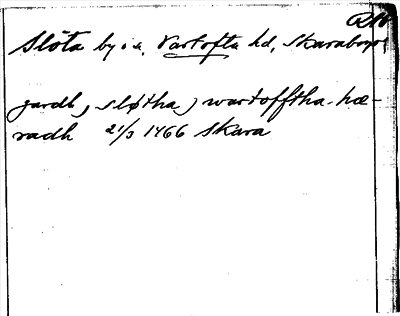 RA
Slöta by i s. Vartofta hd, Skaraborg
gardh, sløtha, wartofftha hæ-
radh 21/3 1466 Skara